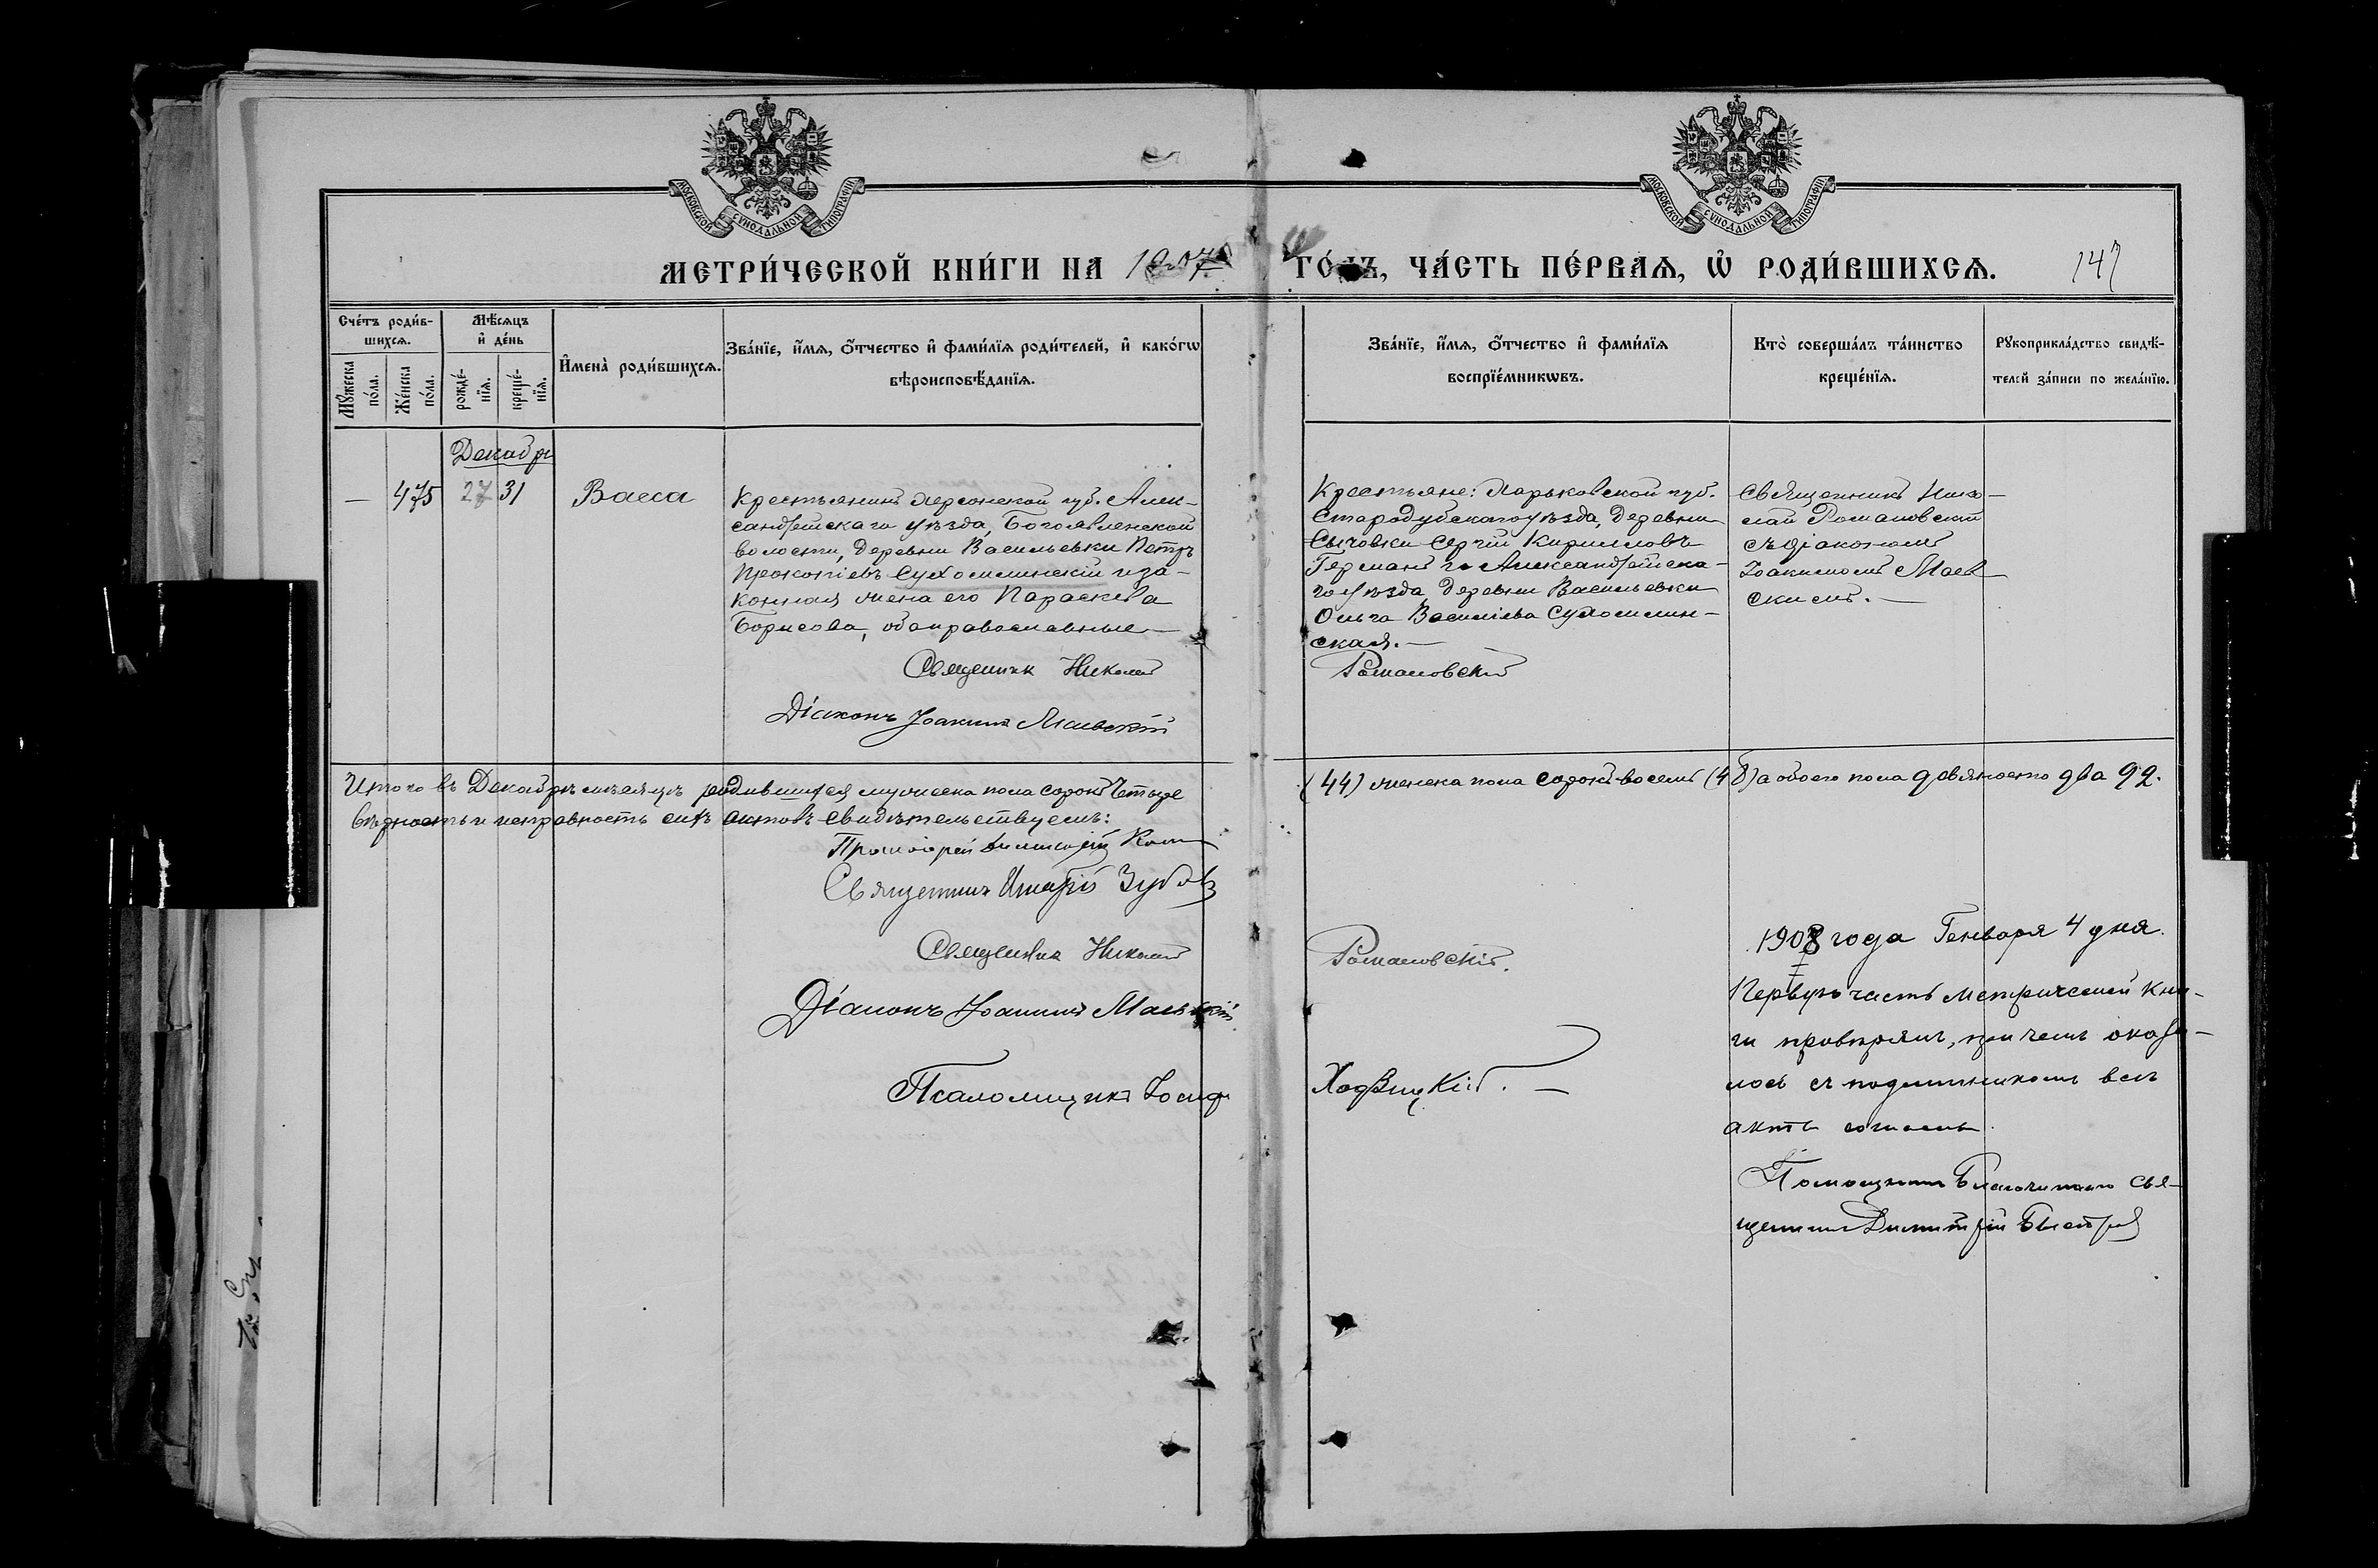 МОСКОВСКОЙ СѴНОДАЛЬНОЙ ТИПОГРАФІИ
МОСКОВСКОЙ СѴНОДАЛЬНОЙ ТИПОГРАФІИ
МЕТРИ́ЧЕСКОЙ КНИ́ГИ НА 1907
ГО́ДЪ, ЧА́СТЬ ПЕ́РВАѦ, Ѿ РОДИ́ВШИХСѦ.
147
Сче́тъ роди́в-
шихсѧ.
Мѣ́сѧцъ
и҆ де́нь
И҆мена̀ роди́вшихсѧ.
Зва́нїе, и҆́мѧ, ѻ҆́тчество и҆ фами́лїѧ роди́телей, и҆ како́гѡ
вѣроисповѣ́данїѧ.
Мꙋ́жеска
по́ла.
Же́нска
по́ла.
рожде́-
нїѧ.
креще́-
нїѧ.
Зва́нїе, и҆́мѧ, ѻ҆́тчество и҆ фами́лїѧ
воспрїе́мникѡвъ.
Кто̀ соверша́лъ та́инство
креще́нїѧ.
Рꙋкоприкла́дство свидѣ́-
телей за́писи по жела́нїю.
Декабрь
— 475 27 31 Васса
Крестьянинъ Херсонской губ. Алек-
сандрійскаго уѣзда, Богоявленской
волости, деревни Васильевки Петръ
Прокопіевъ Сухомлинскій и за-
конная жена его Параскева
Борисова, оба православные —
Священник Николай
Діаконъ Іоакимъ Маевскій
Крестьяне: Харьковской губ.
Стародубскаго уѣзда, деревни
Сычовки Сергій Кирилловъ
Германъ и Александрійска-
го уѣзда, деревни Васильевки
Ольга Василіева Сухомлин-
ская. —
Романовскій
Священникъ Нико-
лай Романовскій
съ діакономъ
Іоакимомъ Маев-
скимъ. —
Итого въ Декабрѣ мѣсяцѣ родившихся мужеска пола сорокъ четыре
(44) женска пола сорокъ восемь (48) а обоего пола девяносто два 92.
вѣрность и исправность сихъ актовъ свидѣтельствуемъ:
Протоіерей
Священникъ Зубовъ
Священникъ Николай
Романовскій.
Діаконъ Іоакимъ Маевскій
Псаломщикъ Іосифъ
Ходзицкій. —
1908 года Генваря 4 дня.
Первую часть метрической кни-
ги провѣрялъ, при чемъ оказа-
лось съ подлинникомъ всѣ
акты согласны.
Помощникъ Благочиннаго свя-
щенникъ Димитрій Быстровъ